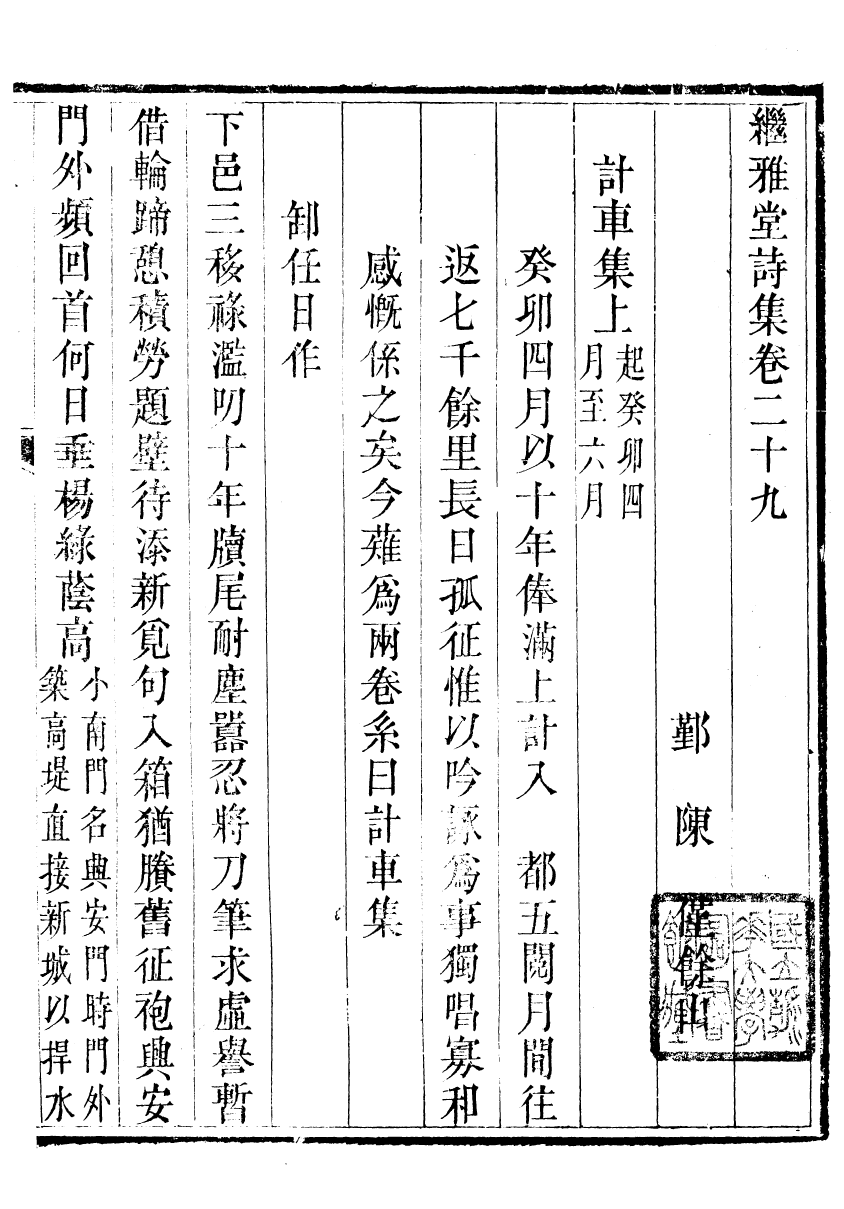 繼雅堂詩集卷二十九
鄞　陳　僅餘山
計車集上起癸卯四月至六月
癸卯四月以十年俸滿上計入　都五閱月間往
返七千餘里長日孤征惟以吟詠爲事獨唱寡和
感慨係之矣今薙爲兩卷系曰計車集
卸任日作
下邑三移祿濫叨十年牘尾耐塵囂忍將刀筆求虛譽暫
借輪蹄憩積勞題壁待添新覓句入箱猶賸舊征袍興安
門外頻回首何日垂楊綠蔭高小南門名興安門時門外
築高堤直接新城以捍水